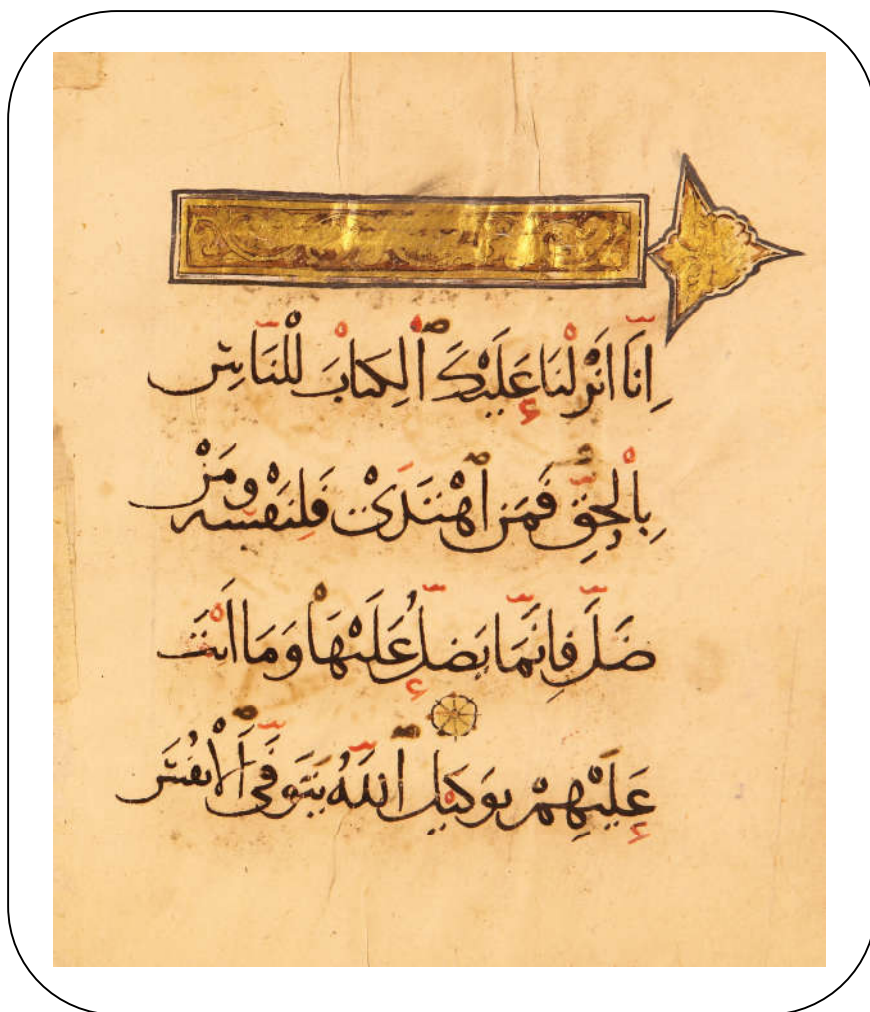 اِنَّا اَنْزَلْنَا عَلَيْكَ ٱلْكِتَابَ لِلنَّاسِ
بِالْحَقِّ فَمَنِ ٱهْتَدَىٰ فَلِنَفْسِهِ وَمَنْ
ضَلَّ فَاِنَّمَا يَضِلُّ عَلَيْهَا وَمَا اَنْتَ
عَلَيْهِمْ بِوَكِيلٍ ٱللَّهُ يَتَوَفَّى ٱلْاَنْفُسَ